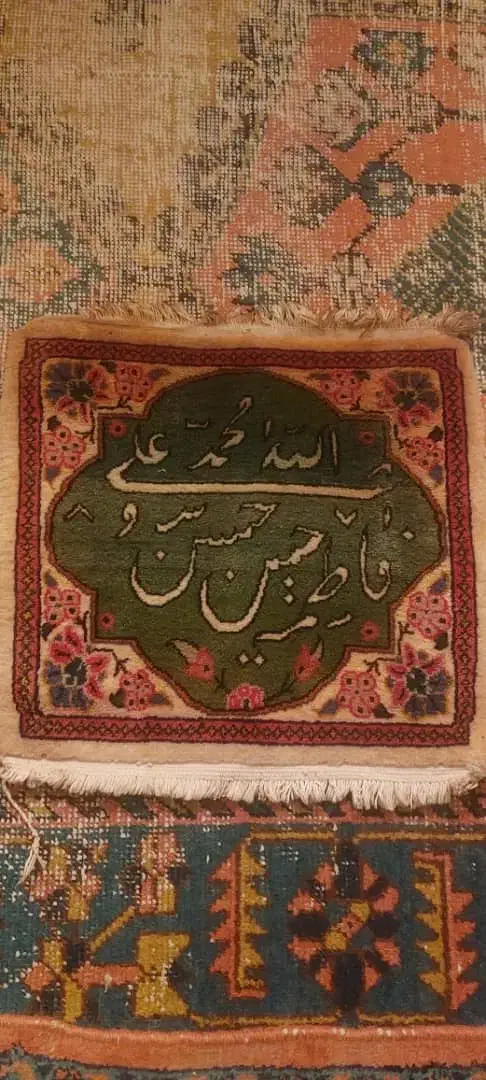 الله محمد علی
فاطمه حسین حسن